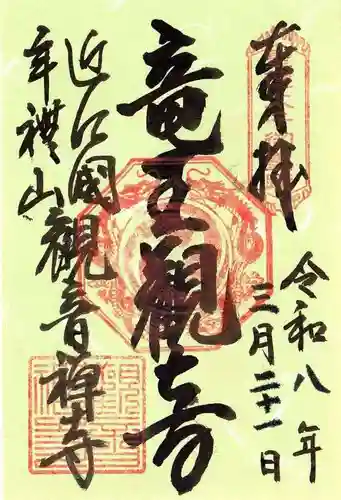 奉拝
令和八年
三月二十一日
竜王観音
近江國観音禅寺
年襟山